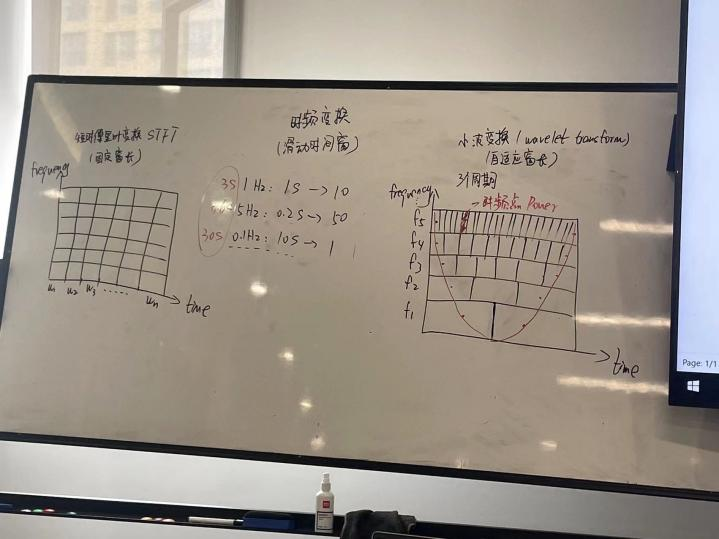 短时傅里叶变换 STFT
(固定窗长)
frequency
w₁ w₂ w₃ ...... wₙ
time
时频变换
(滑动时间窗)
3S 1Hz: 1S → 10
5Hz: 0.2S → 50
30S 0.1Hz: 10S → 1
小波变换 (wavelet transform)
(自适应窗长)
3个周期
frequency
→时频点 Power
f₅
f₄
f₃
f₂
f₁
time
Page: 1/1